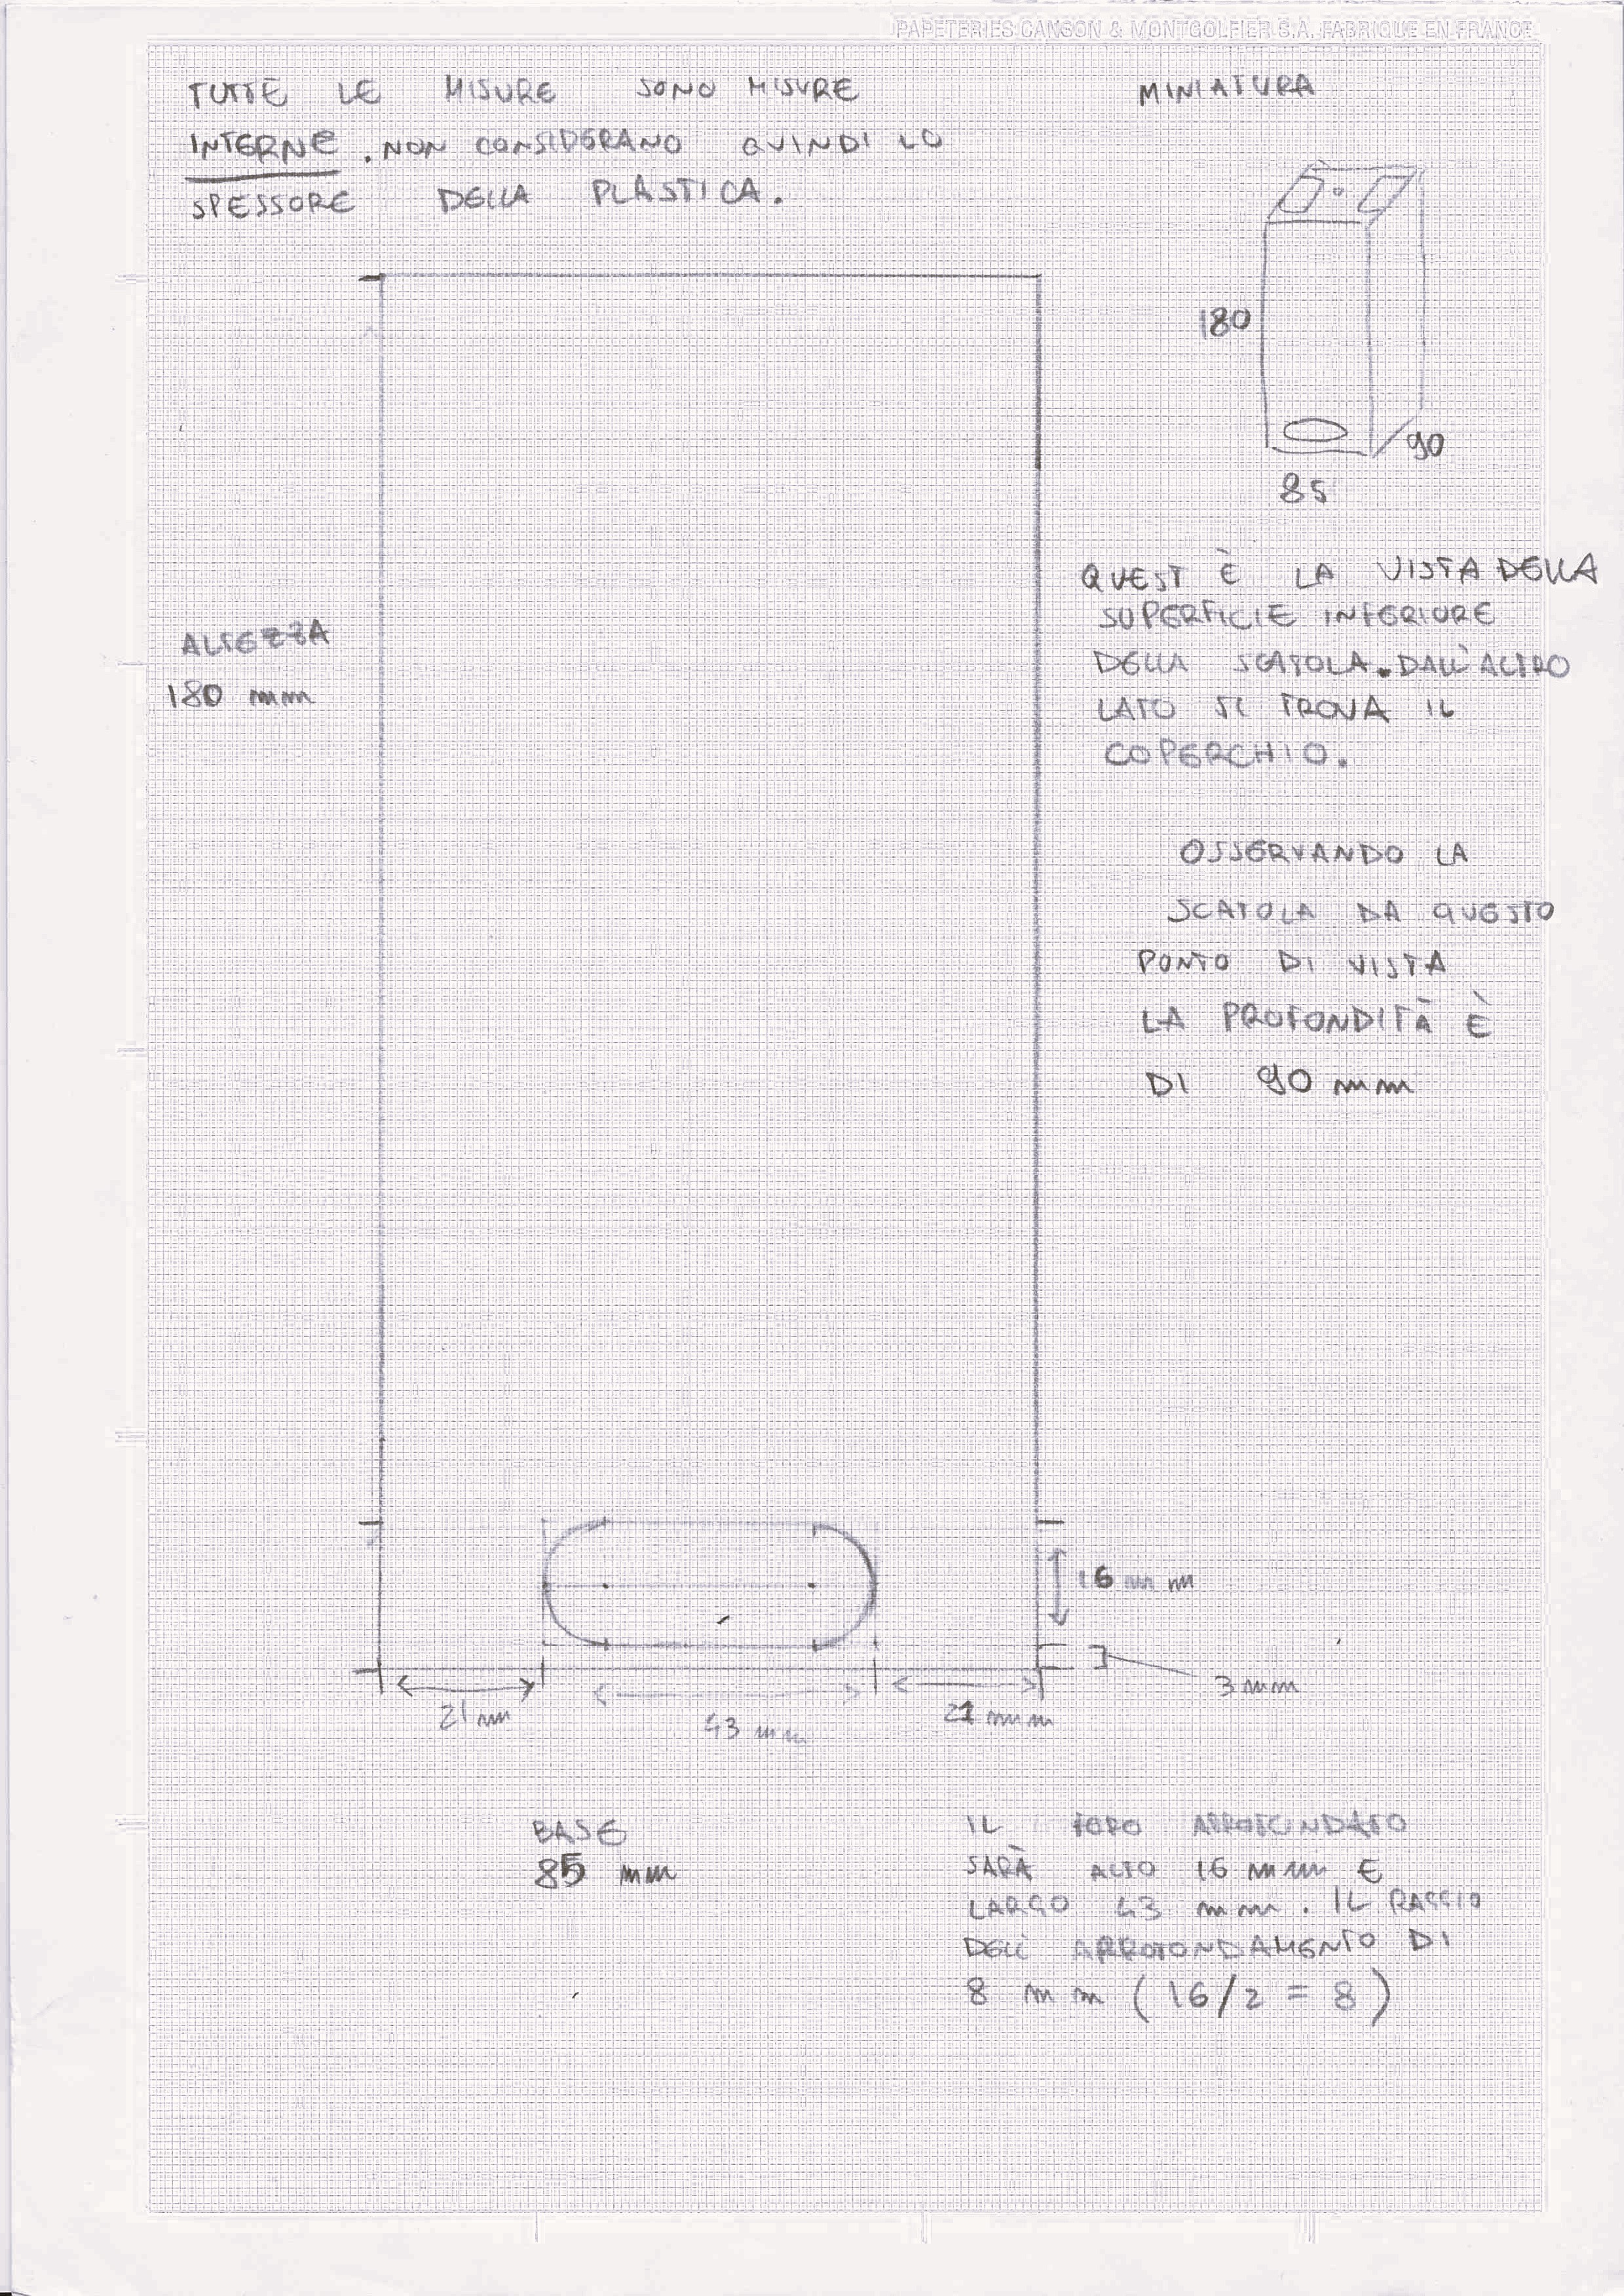 PAPETERIES CANSON & MONTGOLFIER S.A. FABRIQUE EN FRANCE
TUTTE LE MISURE SONO MISURE
INTERNE. NON CONSIDERANO QUINDI LO
SPESSORE DELLA PLASTICA.
MINIATURA
180
90
85
ALTEZZA
180 mm
QUEST È LA VISTA DELLA
SUPERFICIE INFERIORE
DELLA SCATOLA. DALL'ALTRO
LATO SI TROVA IL
COPERCHIO.
OSSERVANDO LA
SCATOLA DA QUESTO
PONTO DI VISTA
LA PROFONDITÀ È
DI 90 mm
16 mm
3 mm
21 mm
43 mm
21 mm
BASE
85 mm
IL FORO ARROTONDATO
SARÀ ALTO 16 mm E
LARGO 43 mm. IL RAGGIO
DELL' ARROTONDAMENTO DI
8 mm (16/2 = 8)